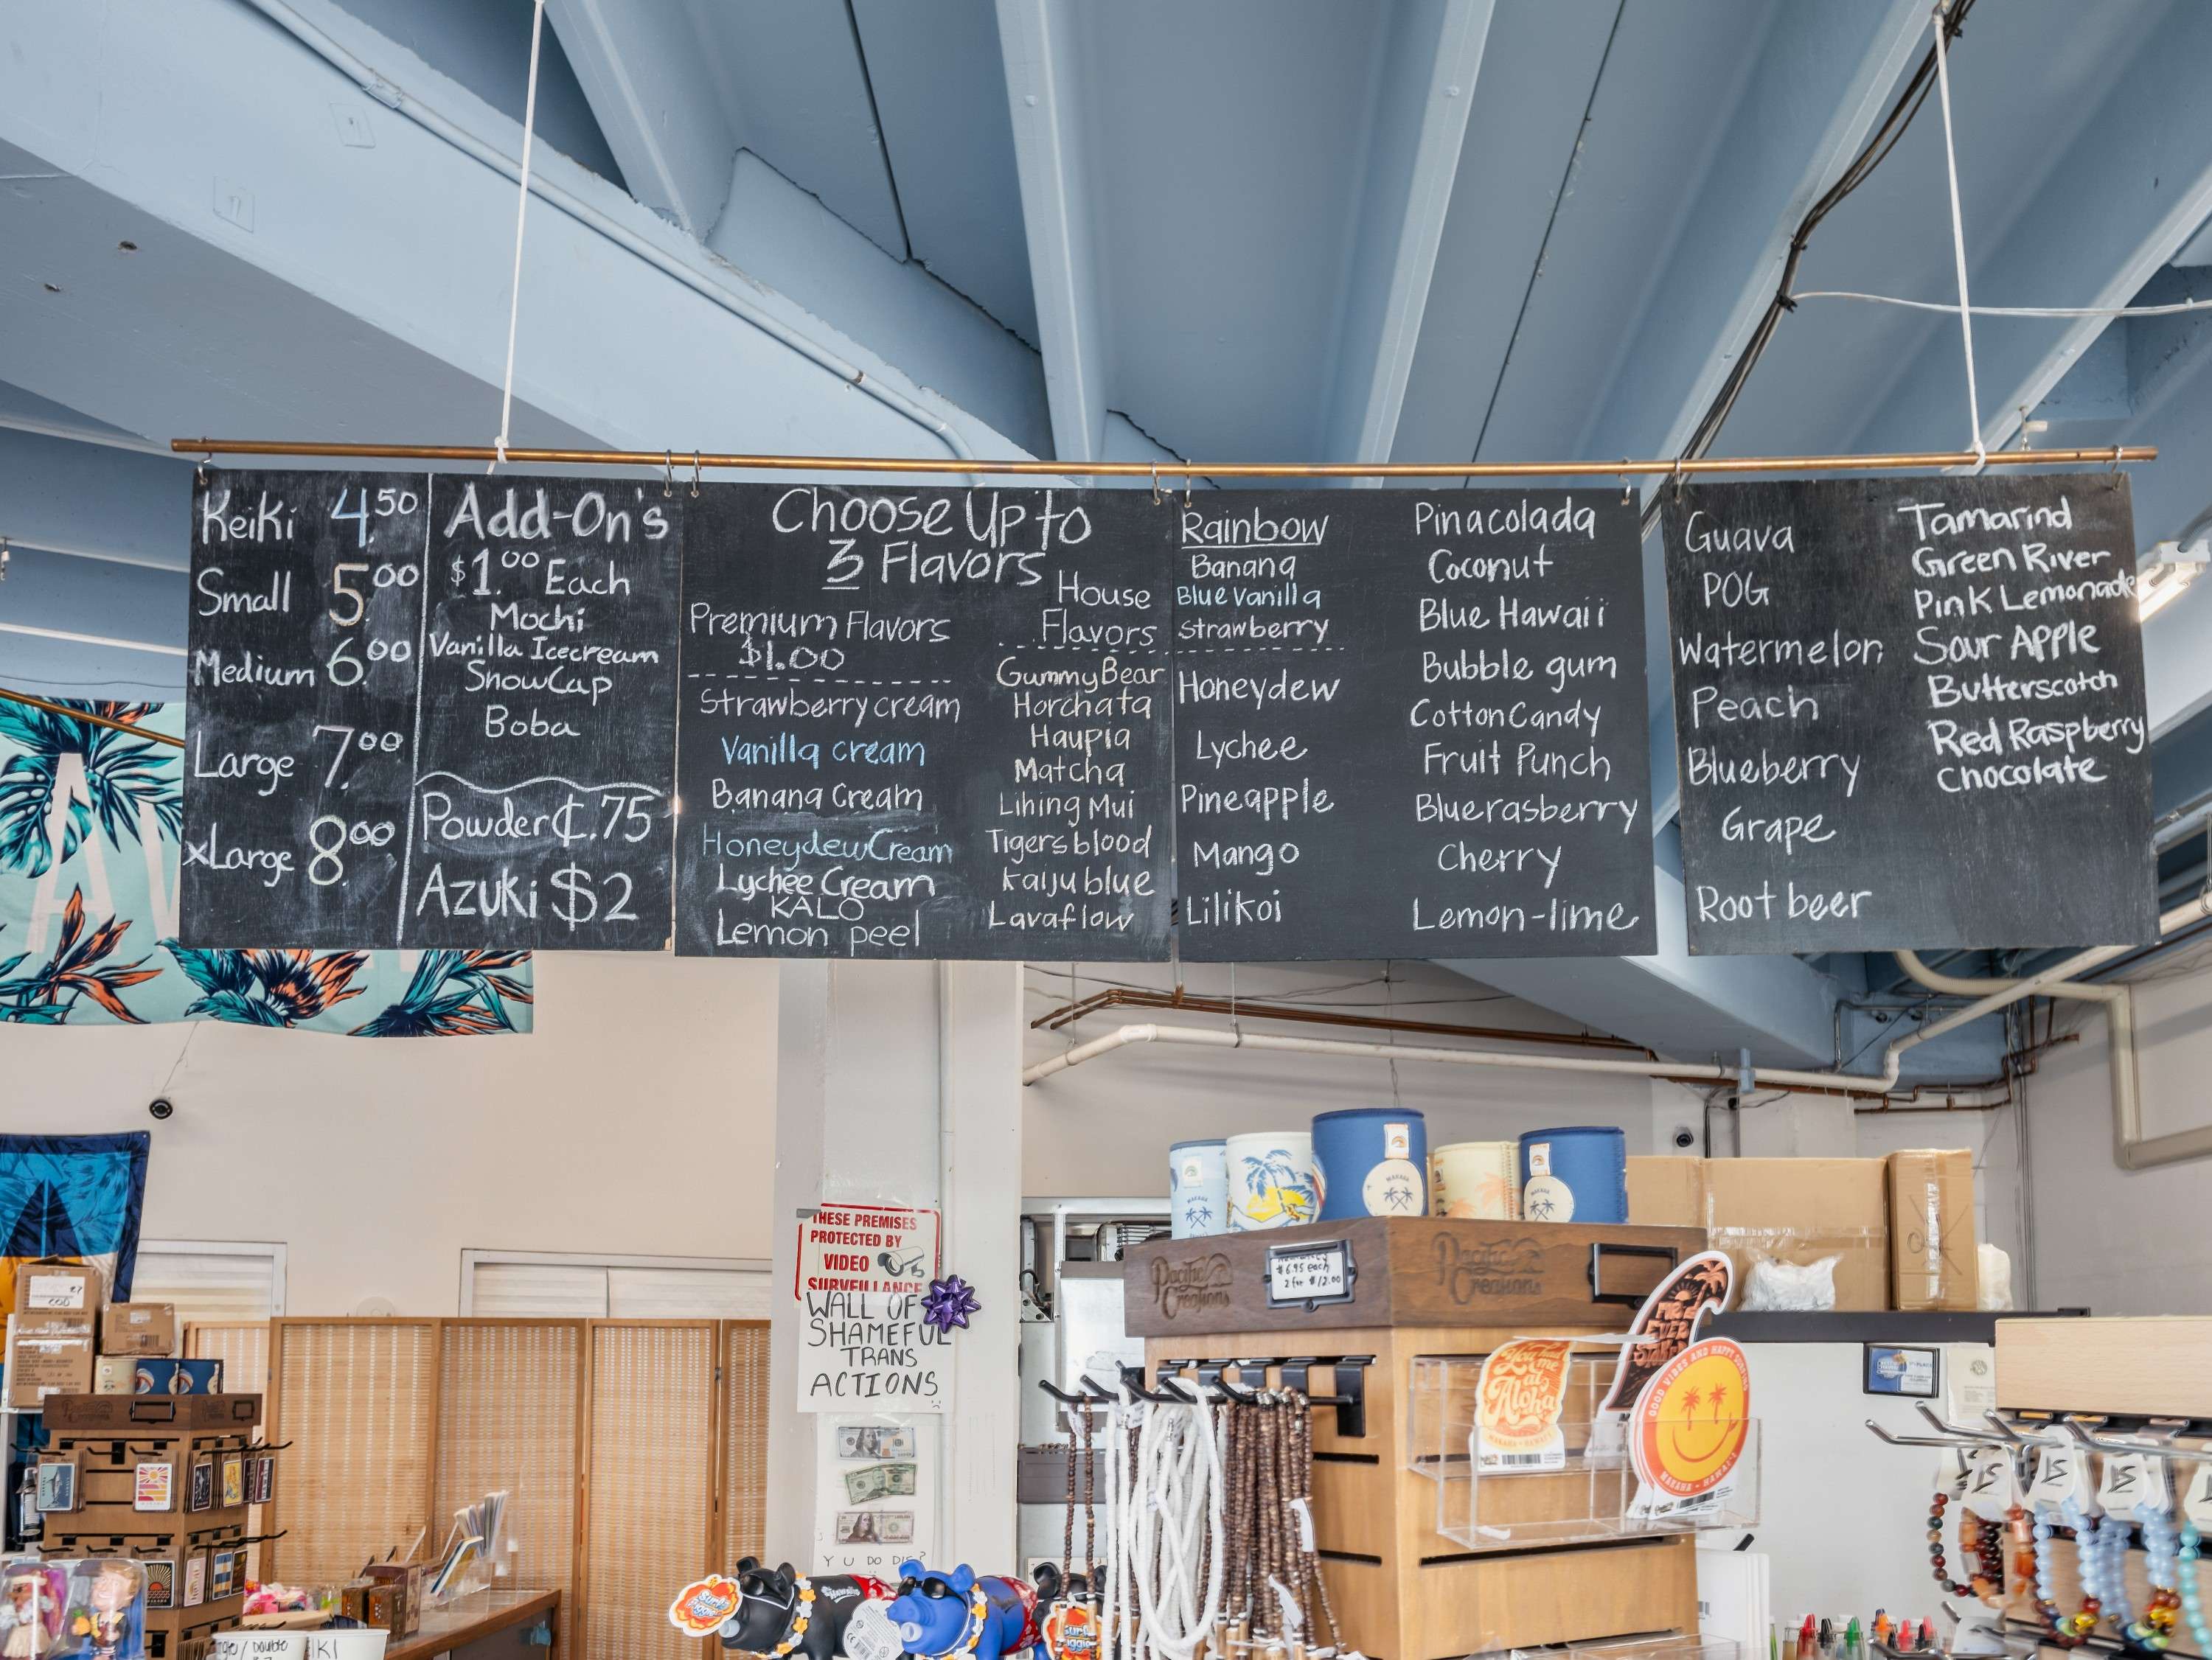 Keiki 4.50
Small 5.00
Medium 6.00
Large 7.00
xLarge 8.00
Add-On's
$1.00 Each
Mochi
Vanilla Icecream
SnowCap
Boba
Powder ¢.75
Azuki $2
Choose Up to
3 Flavors
Premium Flavors
$1.00
Strawberry cream
Vanilla cream
Banana Cream
Honeydew Cream
Lychee Cream
KALO
Lemon peel
House
Flavors
Gummy Bear
Horchata
Haupia
Matcha
Lihing Mui
Tigersblood
Kaiju blue
Lavaflow
Rainbow
Banana
Blue vanilla
strawberry
Honeydew
Lychee
Pineapple
Mango
Lilikoi
Pinacolada
Coconut
Blue Hawaii
Bubble gum
Cotton Candy
Fruit Punch
Bluerasberry
Cherry
Lemon-lime
Guava
POG
Watermelon
Peach
Blueberry
Grape
Root beer
Tamarind
Green River
Pink Lemonade
Sour APPle
Butterscotch
Red Raspberry
chocolate
THESE PREMISES
PROTECTED BY
VIDEO
SURVEILLANCE
WALL OF
SHAMEFUL
TRANS
ACTIONS
Y U DO DIS?
Pacific
Creations
$6.95 each
2 for $12.00
Pacific
Creations
You had
me
at
Aloha
MAKAHA - HAWAI'I
GOOD VIBES AND HAPPY
MAKAHA - HAWAI'I
Surf
Surf